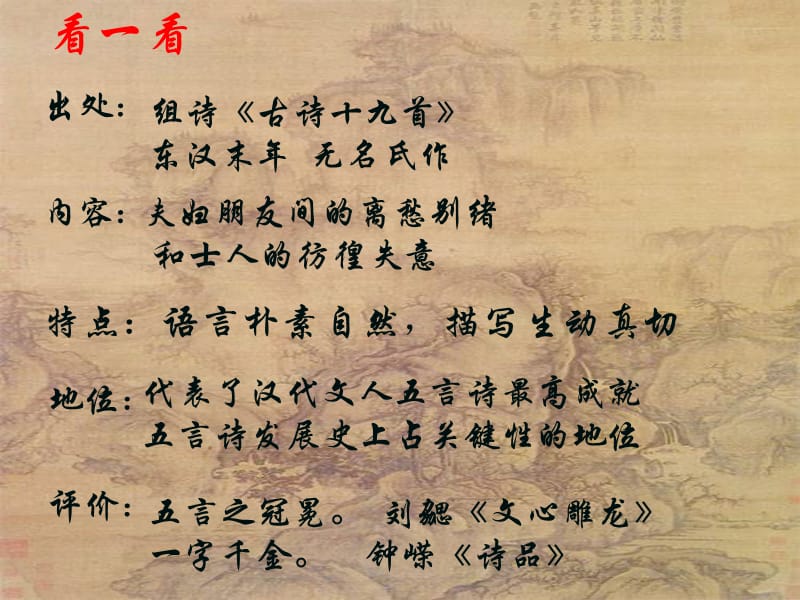 看一看
出处：组诗《古诗十九首》
东汉末年 无名氏作
内容：夫妇朋友间的离愁别绪
和士人的彷徨失意
特点：语言朴素自然，描写生动真切
地位：代表了汉代文人五言诗最高成就
五言诗发展史上占关键性的地位
评价：五言之冠冕。 刘勰《文心雕龙》
一字千金。 钟嵘《诗品》